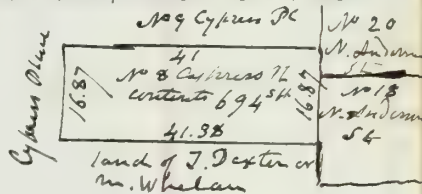 No 9 Cypress Pl
No 20
N. Anderson
St
Cypress Place
16.87
41
No 8 Cypress Pl
contents 694 sft
16.87
41.38
No 18
N. Anderson
St
land of J. Dexter or
M. Whelan